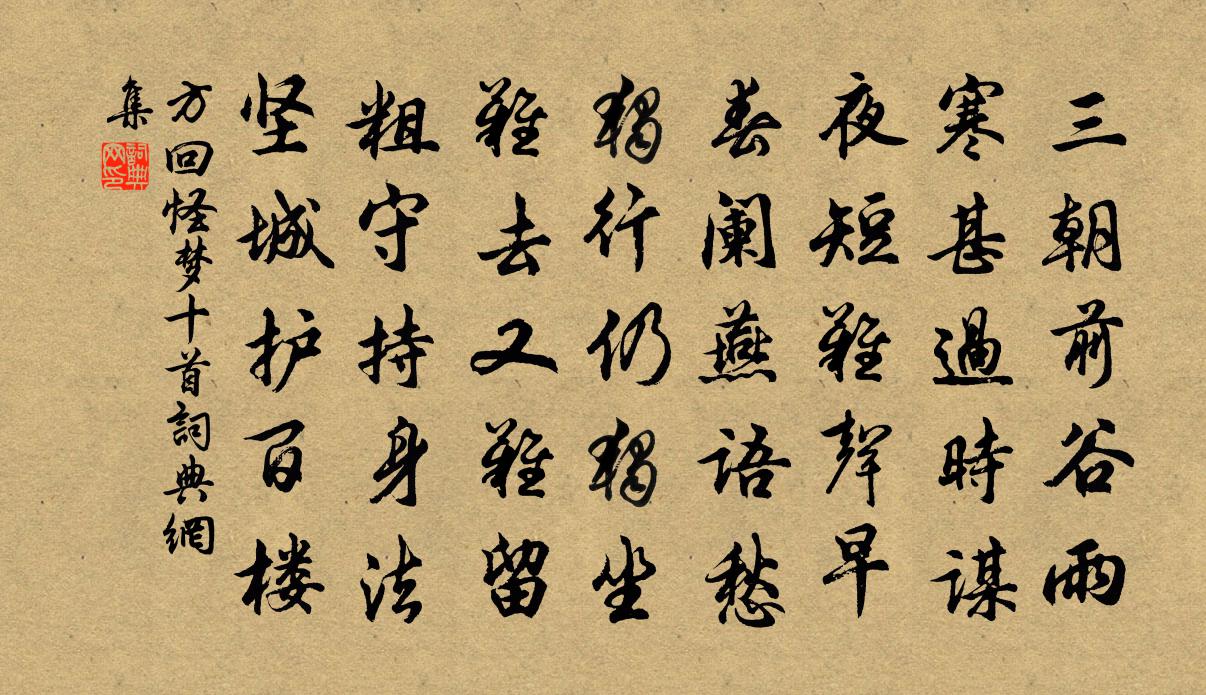 三朝前谷雨
寒甚過時謀
夜短雞聲早
春阑燕語愁
獨行仍獨坐
難去又難留
粗守持身法
坚城护百楼
方回怪梦十首詞典網
集
詞典网印